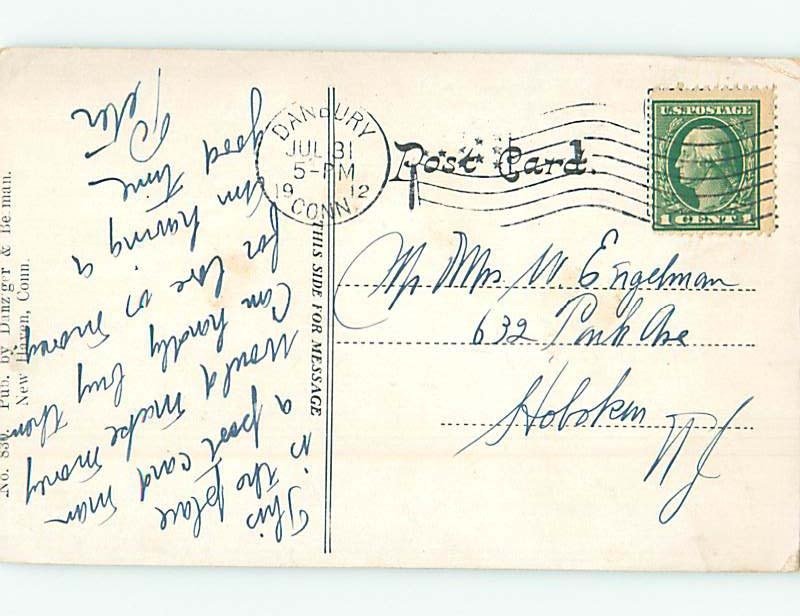 No. 830. Pub. by Danziger & Berman.
New Haven, Conn.
This
is the place
a post card man
would make money
Can hardly buy them
for love or money
Am having a
good time
Peter
THIS SIDE FOR MESSAGE
DANBURY
JUL 31
5-PM
1912
CONN.
Post Card.
U.S. POSTAGE
1 CENT 1
Mr & Mrs W. Engelman
632 Park Ave
Hoboken
NJ